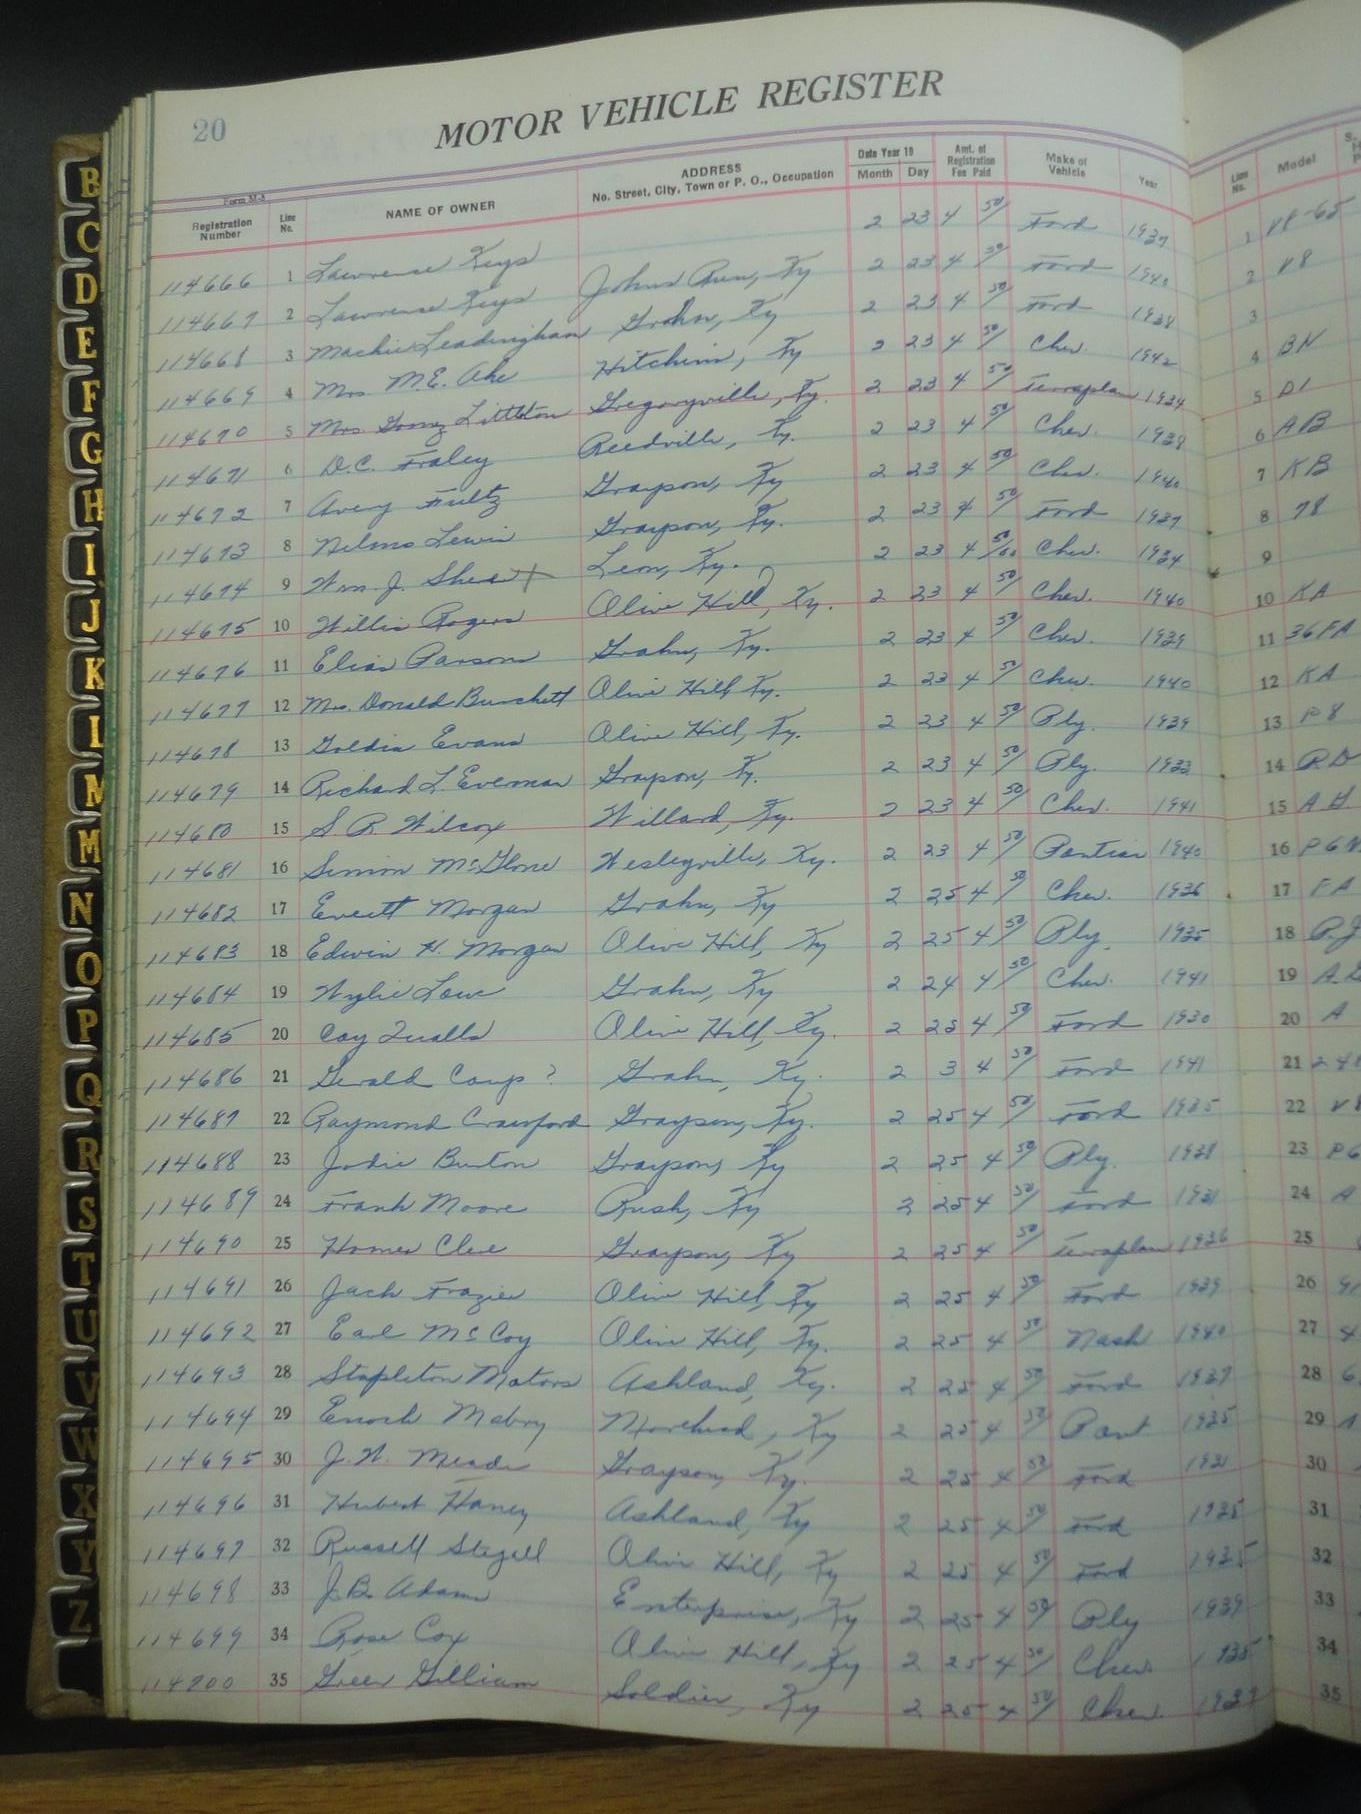 20
MOTOR VEHICLE REGISTER
Form M-3
Registration Number Line No. NAME OF OWNER ADDRESS No. Street, City, Town or P. O., Occupation Date Year 19 Month Day Amt. of Registration Fee Paid Make of Vehicle Year Line No. Model
114666 1 Lawrence Keys Johns Run, Ky 2 23 4 50/ Ford 1937 1 V8-65
114667 2 Lawrence Keys Grahn, Ky 2 23 4 50/ Ford 1940 2 V8
114668 3 Machie Leadingham Hitchins, Ky 2 23 4 50/ Ford 1938 3
114669 4 Mrs. M.E. Ake Gregoryville, Ky. 2 23 4 50/ Chev. 1942 4 BH
114670 5 Mrs. Littleton Reedville, Ky. 2 23 4 50/ Terraplane 1934 5 D1
114671 6 D.C. Fraley Grayson, Ky 2 23 4 50/ Chev. 1938 6 AB
114672 7 Avery Fultz Grayson, Ky. 2 23 4 50/ Chev. 1940 7 KB
114673 8 Lewis Leon, Ky. 2 23 4 50/ Ford 1937 8 78
114674 9 Wm. J. Shea Olive Hill, Ky. 2 23 4 50/ Chev. 1934 9
114675 10 Willis Rogers Grahn, Ky. 2 23 4 50/ Chev. 1940 10 KA
114676 11 Elias Parsons Olive Hill Ky. 2 23 4 50/ Chev. 1939 11 36FA
114677 12 Mrs. Donald Burchett Olive Hill, Ky. 2 23 4 50/ Chev. 1940 12 KA
114678 13 Goldia Evans Grayson, Ky. 2 23 4 50/ Ply. 1939 13 P8
114679 14 Richard L. Everman Willard, Ky. 2 23 4 50/ Ply. 1933 14 PD
114680 15 S R Wilcox Wesleyville, Ky. 2 23 4 50/ Chev. 1941 15
114681 16 Simon McGlone Grahn, Ky 2 23 4 50/ Pontiac 1940 16
114682 17 Everett Morgan Olive Hill, Ky 2 25 4 50/ Chev. 1936 17 FA
114683 18 Edwin H. Morgan Grahn, Ky 2 25 4 50/ Ply. 1935 18 PJ
114684 19 Wylie Lowe Olive Hill, Ky. 2 24 4 50/ Chev. 1941 19
114685 20 Coy Qualls Grahn, Ky. 2 25 4 50/ Ford 1930 20 A
114686 21 Gerald Camp ? Grayson, Ky. 2 3 4 50/ Ford 1941 21
114687 22 Raymond Crawford Grayson, Ky 2 25 4 50/ Ford 1935 22
114688 23 Jodie Burton Rush, Ky 2 25 4 50/ Ply. 1938 23 P6
114689 24 Frank Moore Grayson, Ky 2 25 4 50/ Ford 1931 24 A
114690 25 Homer Clue Olive Hill, Ky 2 25 4 50/ Terraplane 1936 25
114691 26 Jack Frazier Olive Hill, Ky. 2 25 4 50/ Ford 1939 26
114692 27 Earl McCoy Ashland, Ky. 2 25 4 50/ Nash 1940 27
114693 28 Stapleton Motors Morehead, Ky 2 25 4 50/ Ford 1937 28
114694 29 Enoch Mabry Grayson, Ky. 2 25 4 50/ Pont 1935 29
114695 30 J.W. Meade Ashland, Ky 2 25 4 50/ Ford 1931 30
114696 31 Hubert Haney Olive Hill, Ky 2 25 4 50/ Ford 1935 31
114697 32 Russell Stegall Enterprise, Ky 2 25 4 50/ Ford 1935 32
114698 33 J.B. Adams Olive Hill, Ky 2 25 4 50/ Ply 1939 33
114699 34 Rose Cox Soldier, Ky 2 25 4 50/ Chev 1935 34
114700 35 Greer Gilliam 2 25 4 50/ Chev. 1937 35
B
C
D
E
F
G
H
I
J
K
L
M
M
N
O
P
Q
R
S
T
U
V
W
X
Y
Z